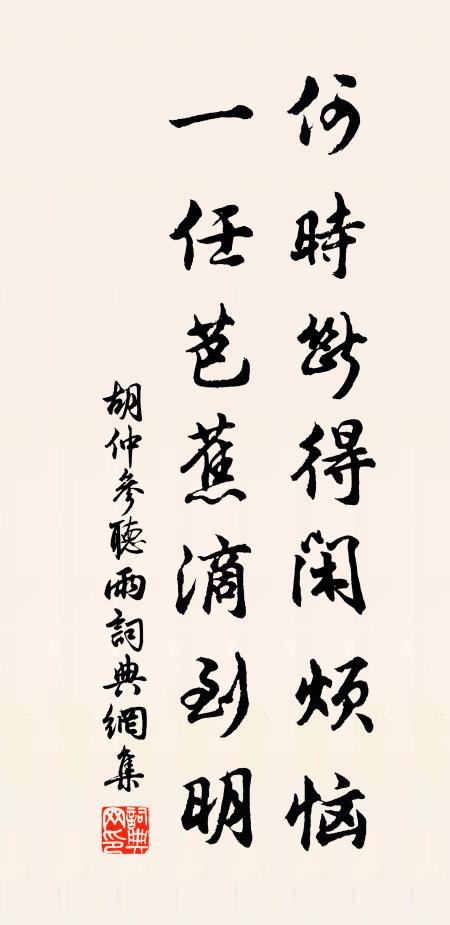 何時斷得闲煩恼
一任芭蕉滴到明
胡仲參聽雨詞典網集
詞典網印